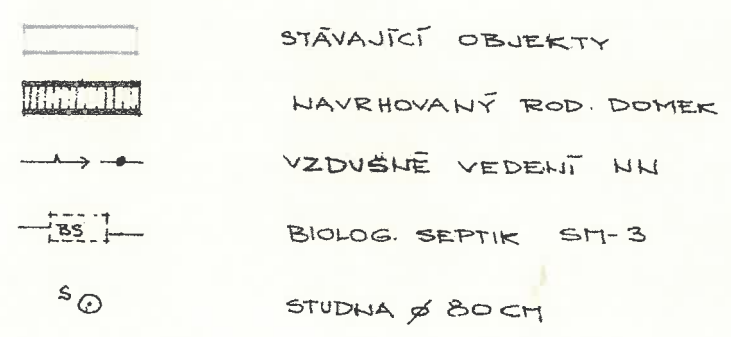 STÁVAJÍCÍ OBJEKTY
NAVRHOVANÝ ROD. DOMEK
VZDUŠNÉ VEDENÍ NN
BS BIOLOG. SEPTIK SM-3
S STUDNA Ø 80 CM